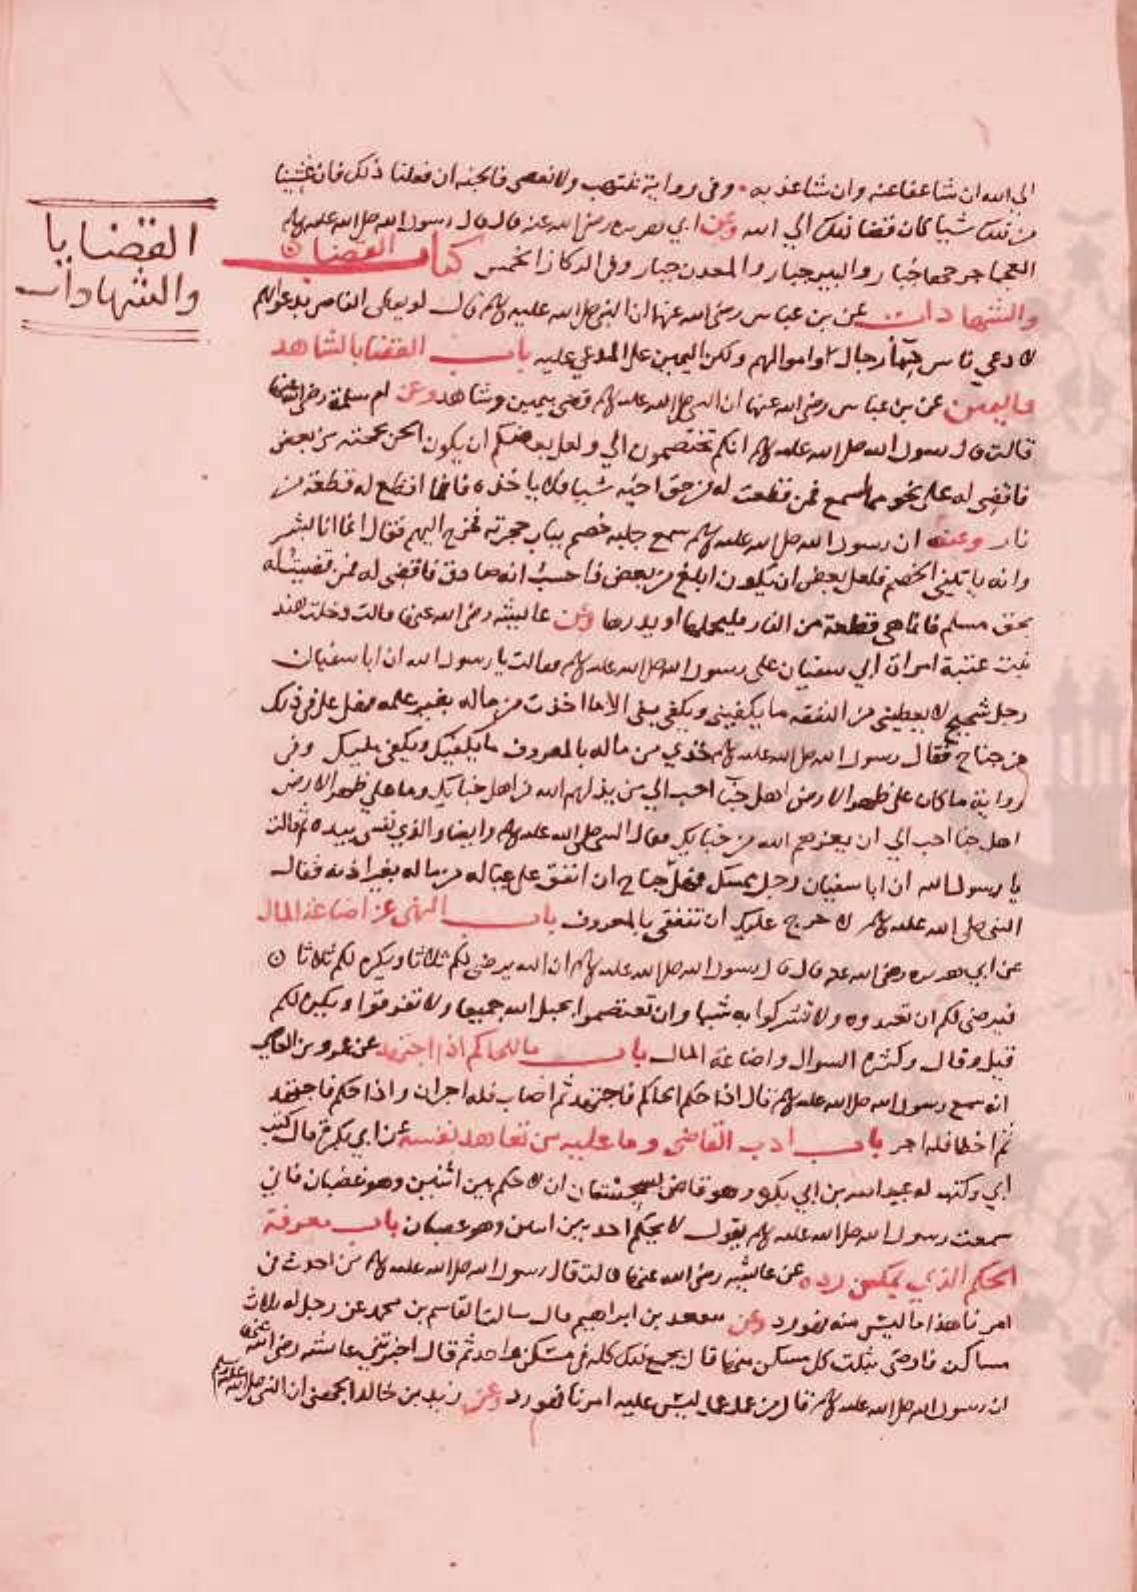 القضايا
والشهادات
الى الله ان شا عفا عنه وان شا عذبه وفى رواية ننتهب ولا نعصى فالجنه ان فعلنا ذلك فان غشينا
من ذلك شيا كان قضا ذلك الى الله وعن ابي هريره رضى الله عنه قال قال رسول الله صلى الله عليه وسلم
العجما جرحها جبار والبير جبار والمعدن جبار وفى الركاز الخمس كتاب القضايا
والشهادات عن بن عباس رضى الله عنهما ان النبى صلى الله عليه وسلم قال لو يعطى الناس بدعواهم
لادعي ناس دمآ رجال واموالهم ولكن اليمين على المدعي عليه باب القضا بالشاهد
واليمين عن بن عباس رضى الله عنهما ان النبى صلى الله عليه وسلم قضى بيمين وشاهد وعن ام سلمة رضى الله عنها
قالت قال رسول الله صلى الله عليه وسلم انكم تختصمون الي ولعل بعضكم ان يكون الحن بحجته من بعض
فاقضى له على نحو مما اسمع فمن قطعت له من حق اخيه شيا فلا ياخذه فانما اقطع له قطعة من
نار وعنها ان رسول الله صلى الله عليه وسلم سمع جلبه خصم بباب حجرته فخرج اليهم فقال انما انا بشر
وانه ياتيني الخصم فلعل بعض ان يكون ابلغ من بعض فاحسب انه صادق فاقضى له فمن قضيت له
بحق مسلم فانما هى قطعة من النار فليحملها او يذرها وعن عايشه رضى الله عنها قالت دخلت هند
بنت عتبة امراة ابي سفيان على رسول الله صلى الله عليه وسلم فقالت يا رسول الله ان ابا سفيان
رجل شحيح لا يعطينى من النفقه ما يكفينى ويكفى بنى الا ما اخذت من ماله بغير علمه فهل على فى ذلك
من جناح فقال رسول الله صلى الله عليه وسلم خذي من ماله بالمعروف ما يكفيك ويكفى بنيك وفى
رواية ما كان على ظهر الارض اهل خبآ احب الي من يذلهم الله من اهل خبايك وما على ظهر الارض
اهل خبا احب الي ان يعزهم الله من خبايك فقال النبى صلى الله عليه وسلم وايضا والذي نفسى بيده ثم قالت
يا رسول الله ان ابا سفيان رجل ممسك فهل على جناح ان انفق على عياله من ماله بغير اذنه فقال
النبى صلى الله عليه وسلم لا حرج عليك ان تنفقى بالمعروف باب النهى عن اضاعة المال
عن ابي هريره رضى الله عنه قال قال رسول الله صلى الله عليه وسلم ان الله يرضى لكم ثلاثا ويكره لكم ثلاثا
فيرضى لكم ان تعبدوه ولا تشركوا به شيا وان تعتصموا بحبل الله جميعا ولا تفرقوا ويكره لكم
قيل وقال وكثره السوال واضاعة المال باب ما للحاكم اذا اجتهد عن عمرو بن العاص
انه سمع رسول الله صلى الله عليه وسلم قال اذا حكم الحاكم فاجتهد ثم اصاب فله اجران واذا حكم فاجتهد
ثم اخطا فله اجر باب ادب القاضى وما عليه من تعاهد نفسه عن ابي بكرة قال كتب
ابي وكتبه له عبيد الله بن ابي بكره وهو قاض بسجستان ان لا حكم بين اثنين وهو غضبان فاني
سمعت رسول الله صلى الله عليه وسلم يقول لا يحكم احد بين اثنين وهو غضبان باب معرفة
الحكم الذي يمكن رده عن عايشه رضى الله عنها قالت قال رسول الله صلى الله عليه وسلم من احدث فى
امرنا هذا ما ليس منه فهو رد وعن سعد بن ابراهيم قال سالت القاسم بن محمد عن رجل له ثلاث
مساكن فاوصى بثلث كل مسكن منها قال يجمع ذلك كله فى مسكن واحد ثم قال اخبرتني عايشه رضى الله عنها
ان رسول الله صلى الله عليه وسلم قال من عمل عملا ليس عليه امرنا فهو رد وعن زيد بن خالد الجهنى ان النبى صلى الله عليه وسلم